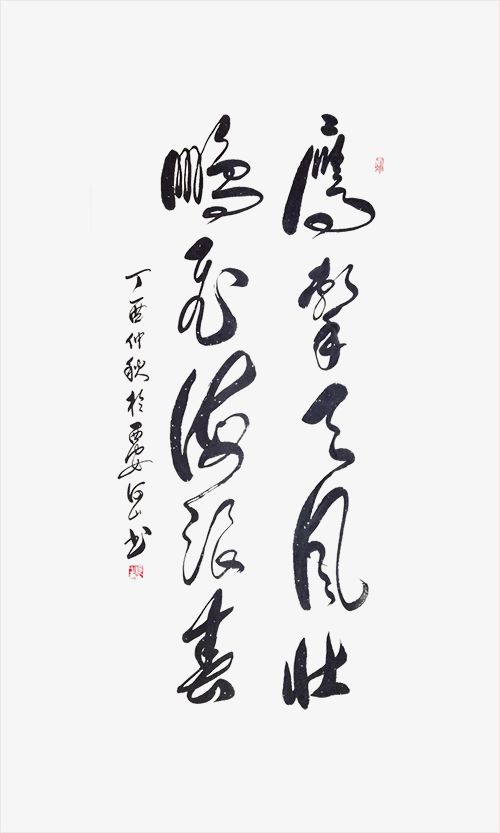 鹰击天风壮
鹏飞海浪春
丁酉仲秋于西安河山书